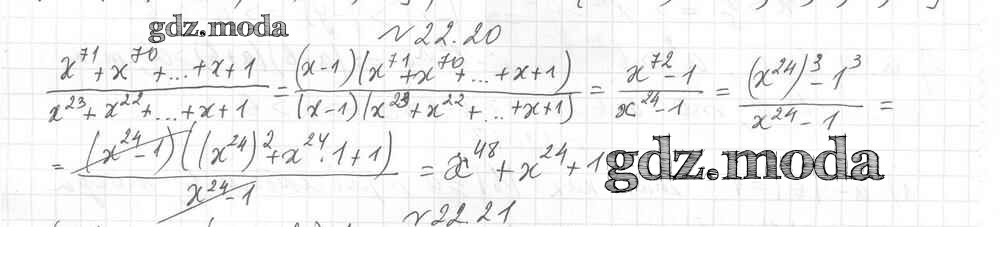 gdz.moda
№ 22.20
(x^71 + x^70 + ... + x + 1)/(x^23 + x^22 + ... + x + 1) = ((x-1)(x^71 + x^70 + ... + x + 1))/((x-1)(x^23 + x^22 + ... + x + 1)) = (x^72 - 1)/(x^24 - 1) = ((x^24)^3 - 1^3)/(x^24 - 1) =
= ((x^24 - 1)((x^24)^2 + x^24 · 1 + 1))/(x^24 - 1) = x^48 + x^24 + 1
gdz.moda
№ 22.21